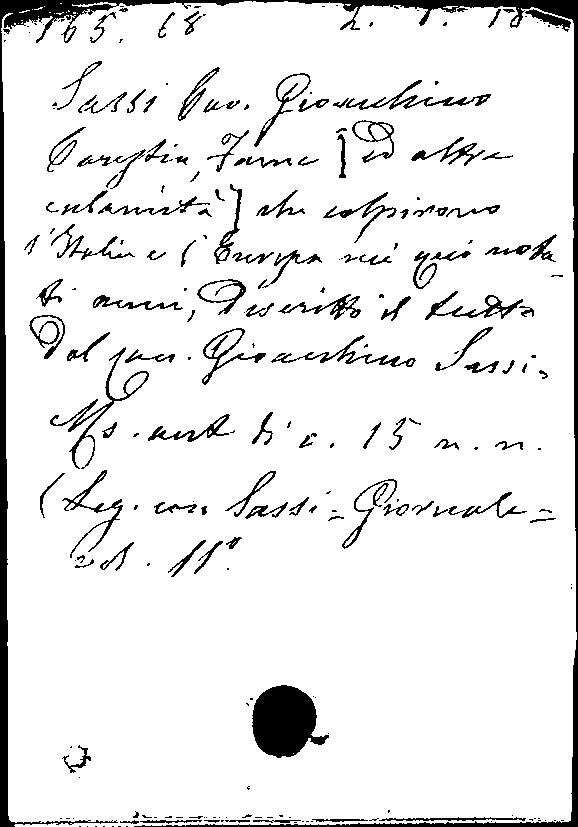 165. 68 2. 1. 18
Sassi Sac. Gioacchino
Carestia, Fame [ed altre
calamità] che colpirono
l'Italia e l'Europa nei quì nota-
ti anni, Discritto il tutto
Dal sac. Gioacchino Sassi.
Ms. aut. di c. 15 n. n.
(Leg. con Sassi = Giornale =
vol. 11°.